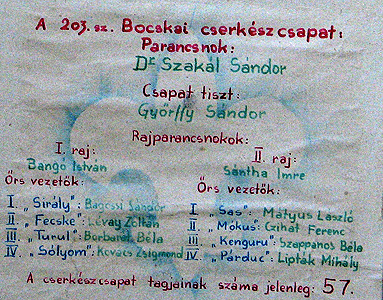 A 203. sz. Bocskai cserkészcsapat:
Parancsnok:
Dr Szakál Sándor
Csapat tiszt:
Győrffy Sándor
Rajparancsnokok:
I. raj:
Bangó István
Őrs vezetők:
I. „Sirály": Bagossi Sándor
II. „Fecske": Lévay Zoltán
III. „Turul": Borbarát Béla
IV. „Sólyom": Kovács Zsigmond
II. raj:
Sántha Imre
Őrs vezetők:
I „Sas": Mátyus László
II. „Mókus: Czihat Ferenc
III. „Kenguru": Szappanos Béla
IV. „Párduc": Lipták Mihály
A cserkészcsapat tagjainak száma jelenleg: 57.